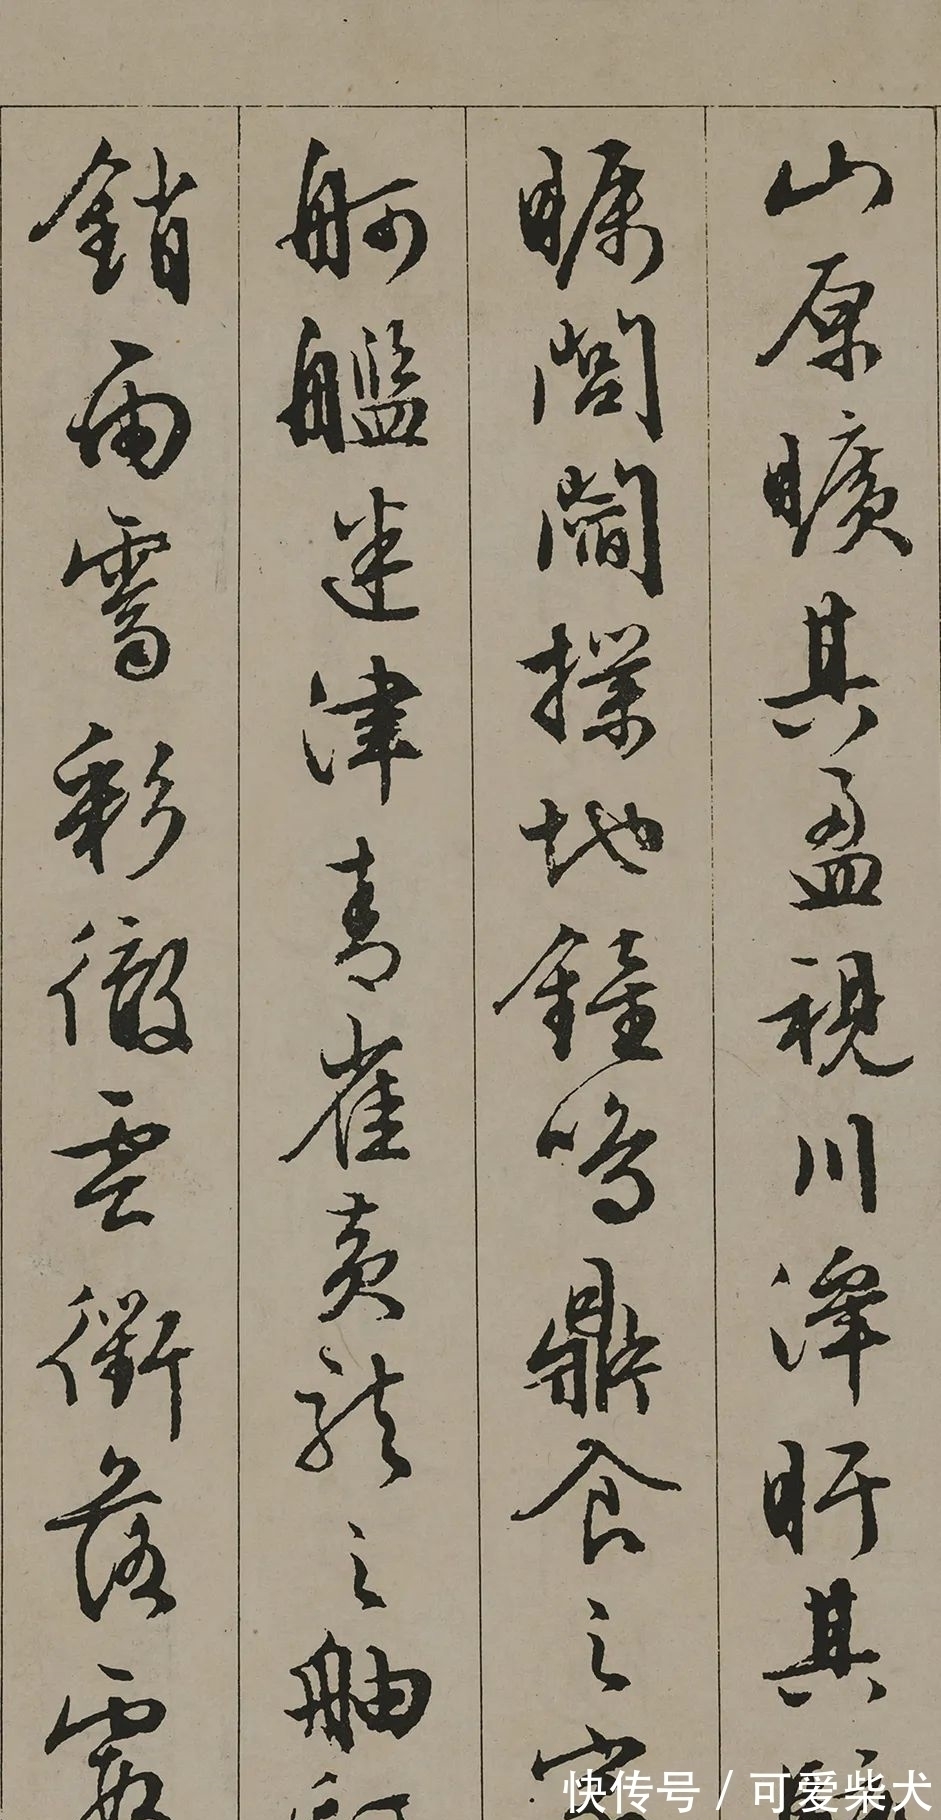 山原曠其盈視川澤盱其
矚閭閻撲地鐘鳴鼎食之家
舸艦迷津青雀黃龍之舳
銷雨霽彩徹雲衢落霞
快传号 / 可爱柴犬